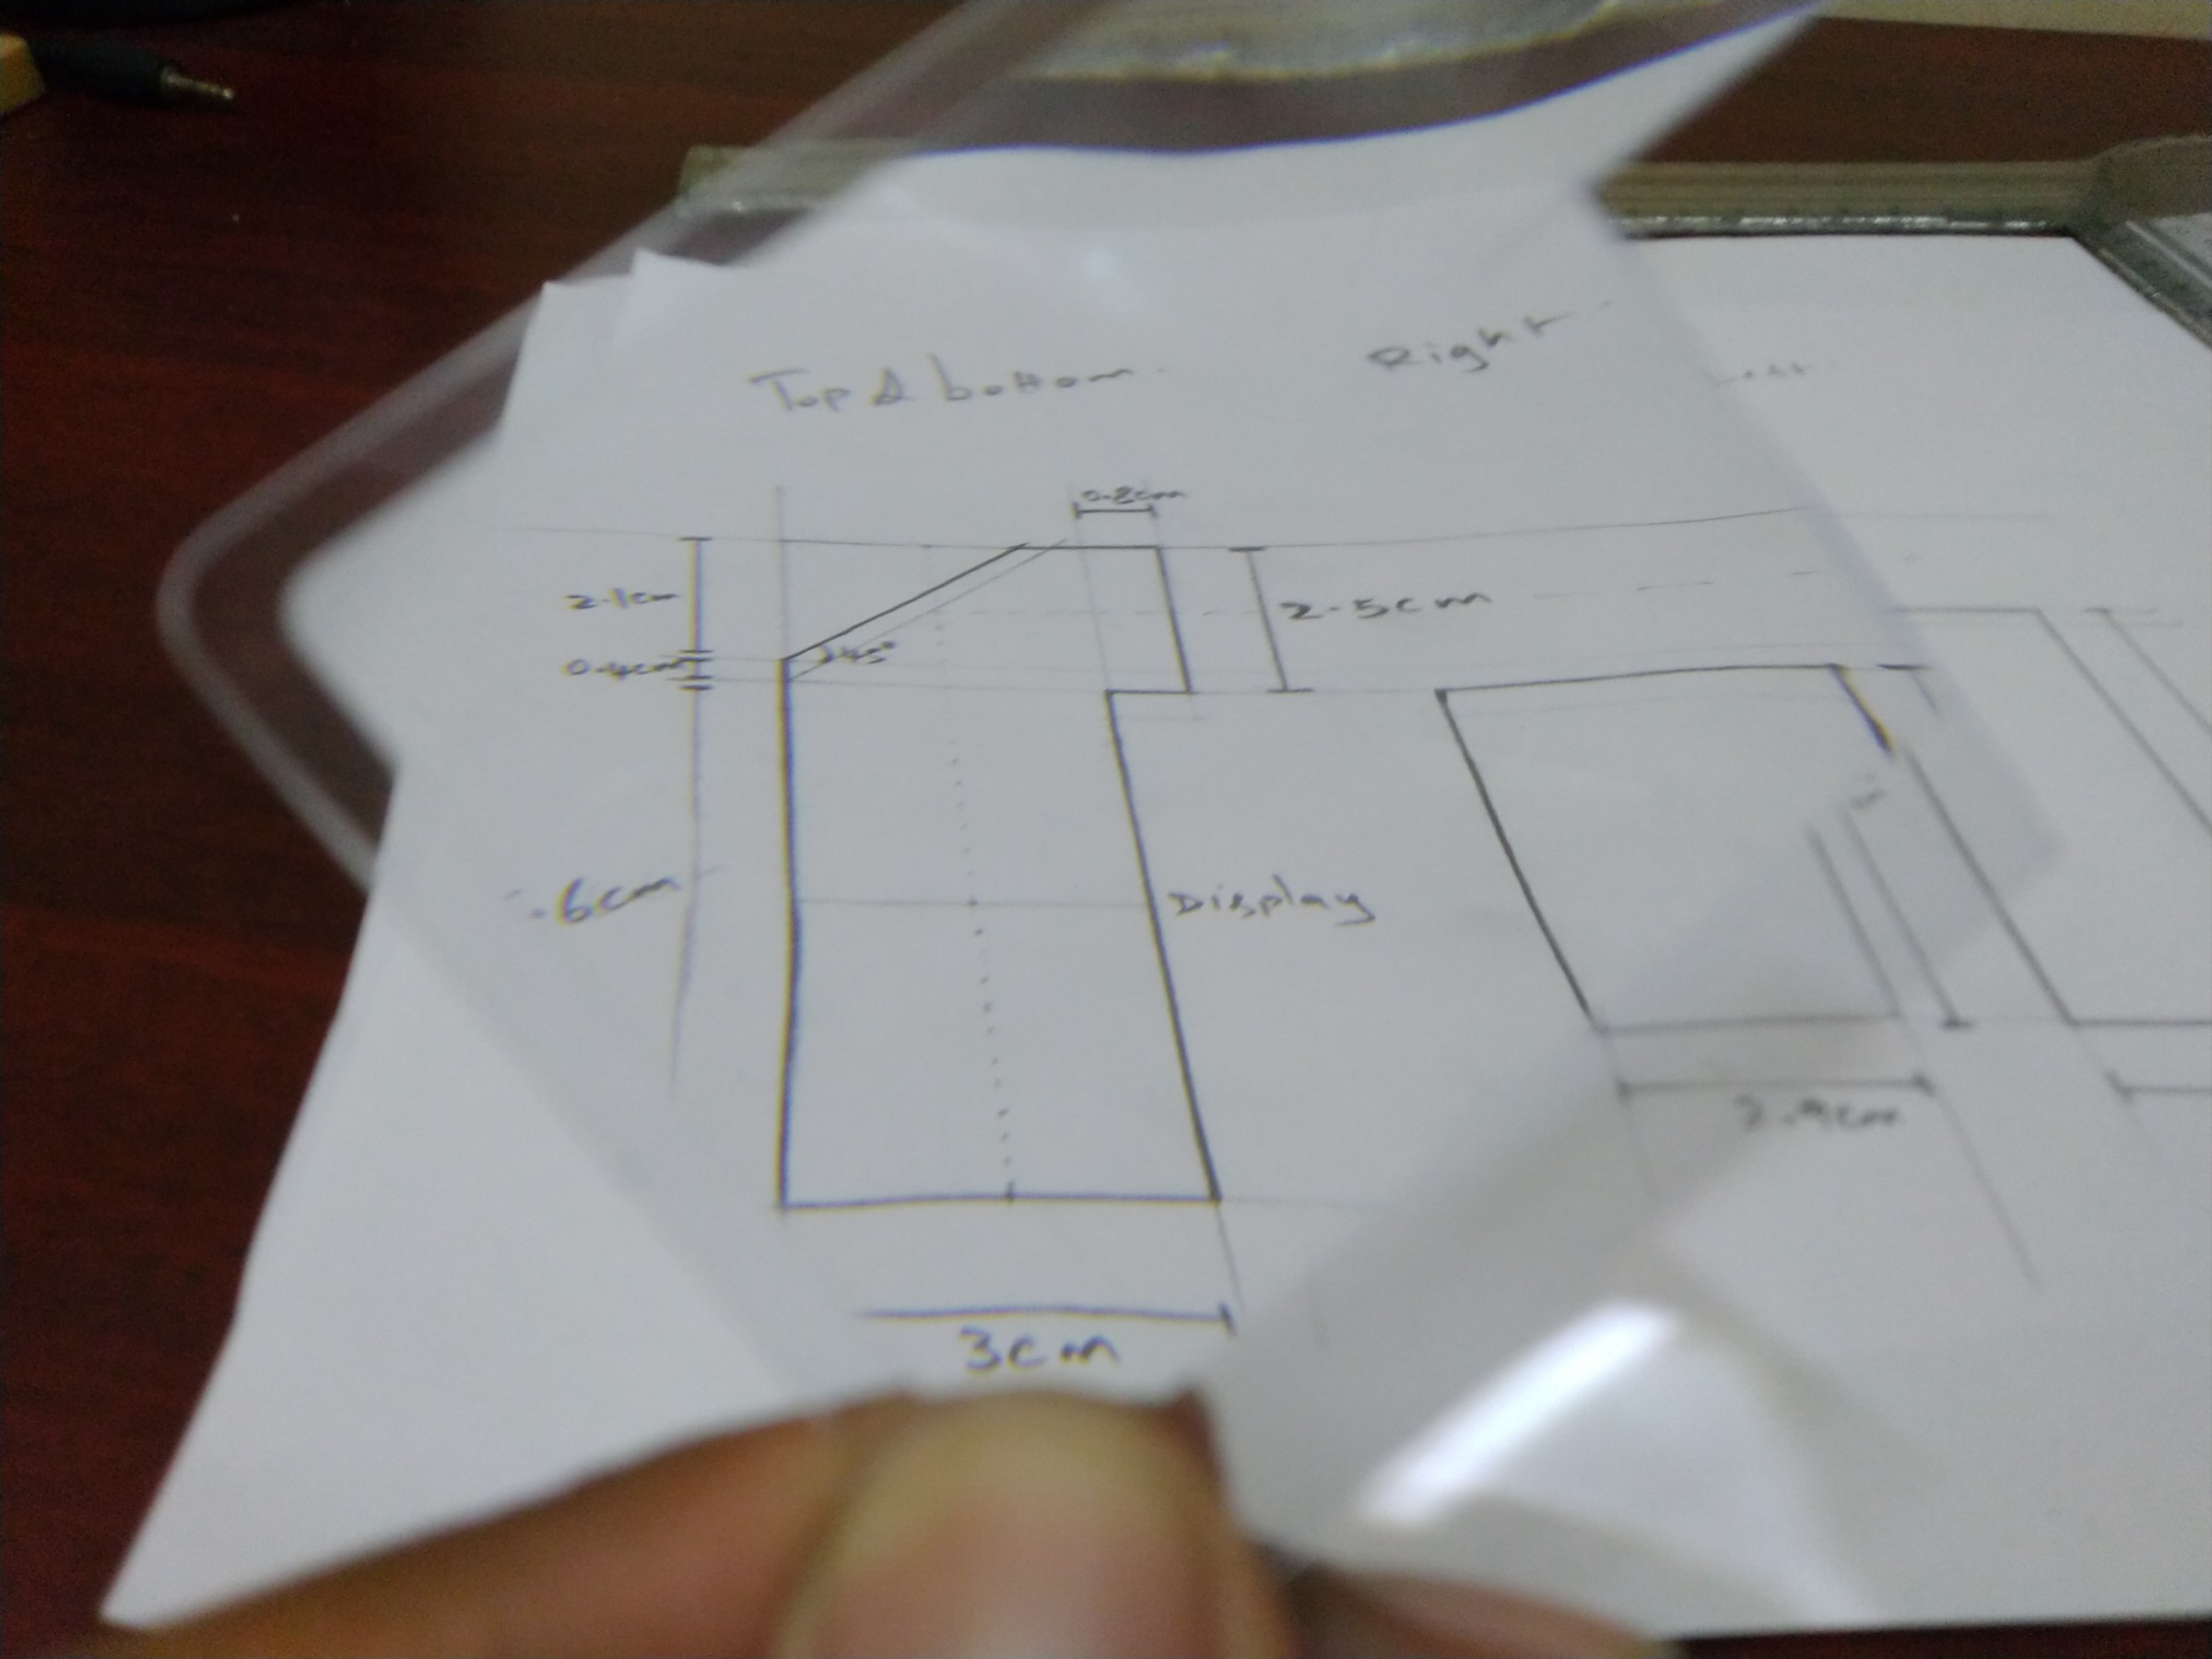 Top & bottom
Right
0.8cm
2.1cm
2.5cm
0.4cm
45°
6cm
Display
2.9cm
3cm